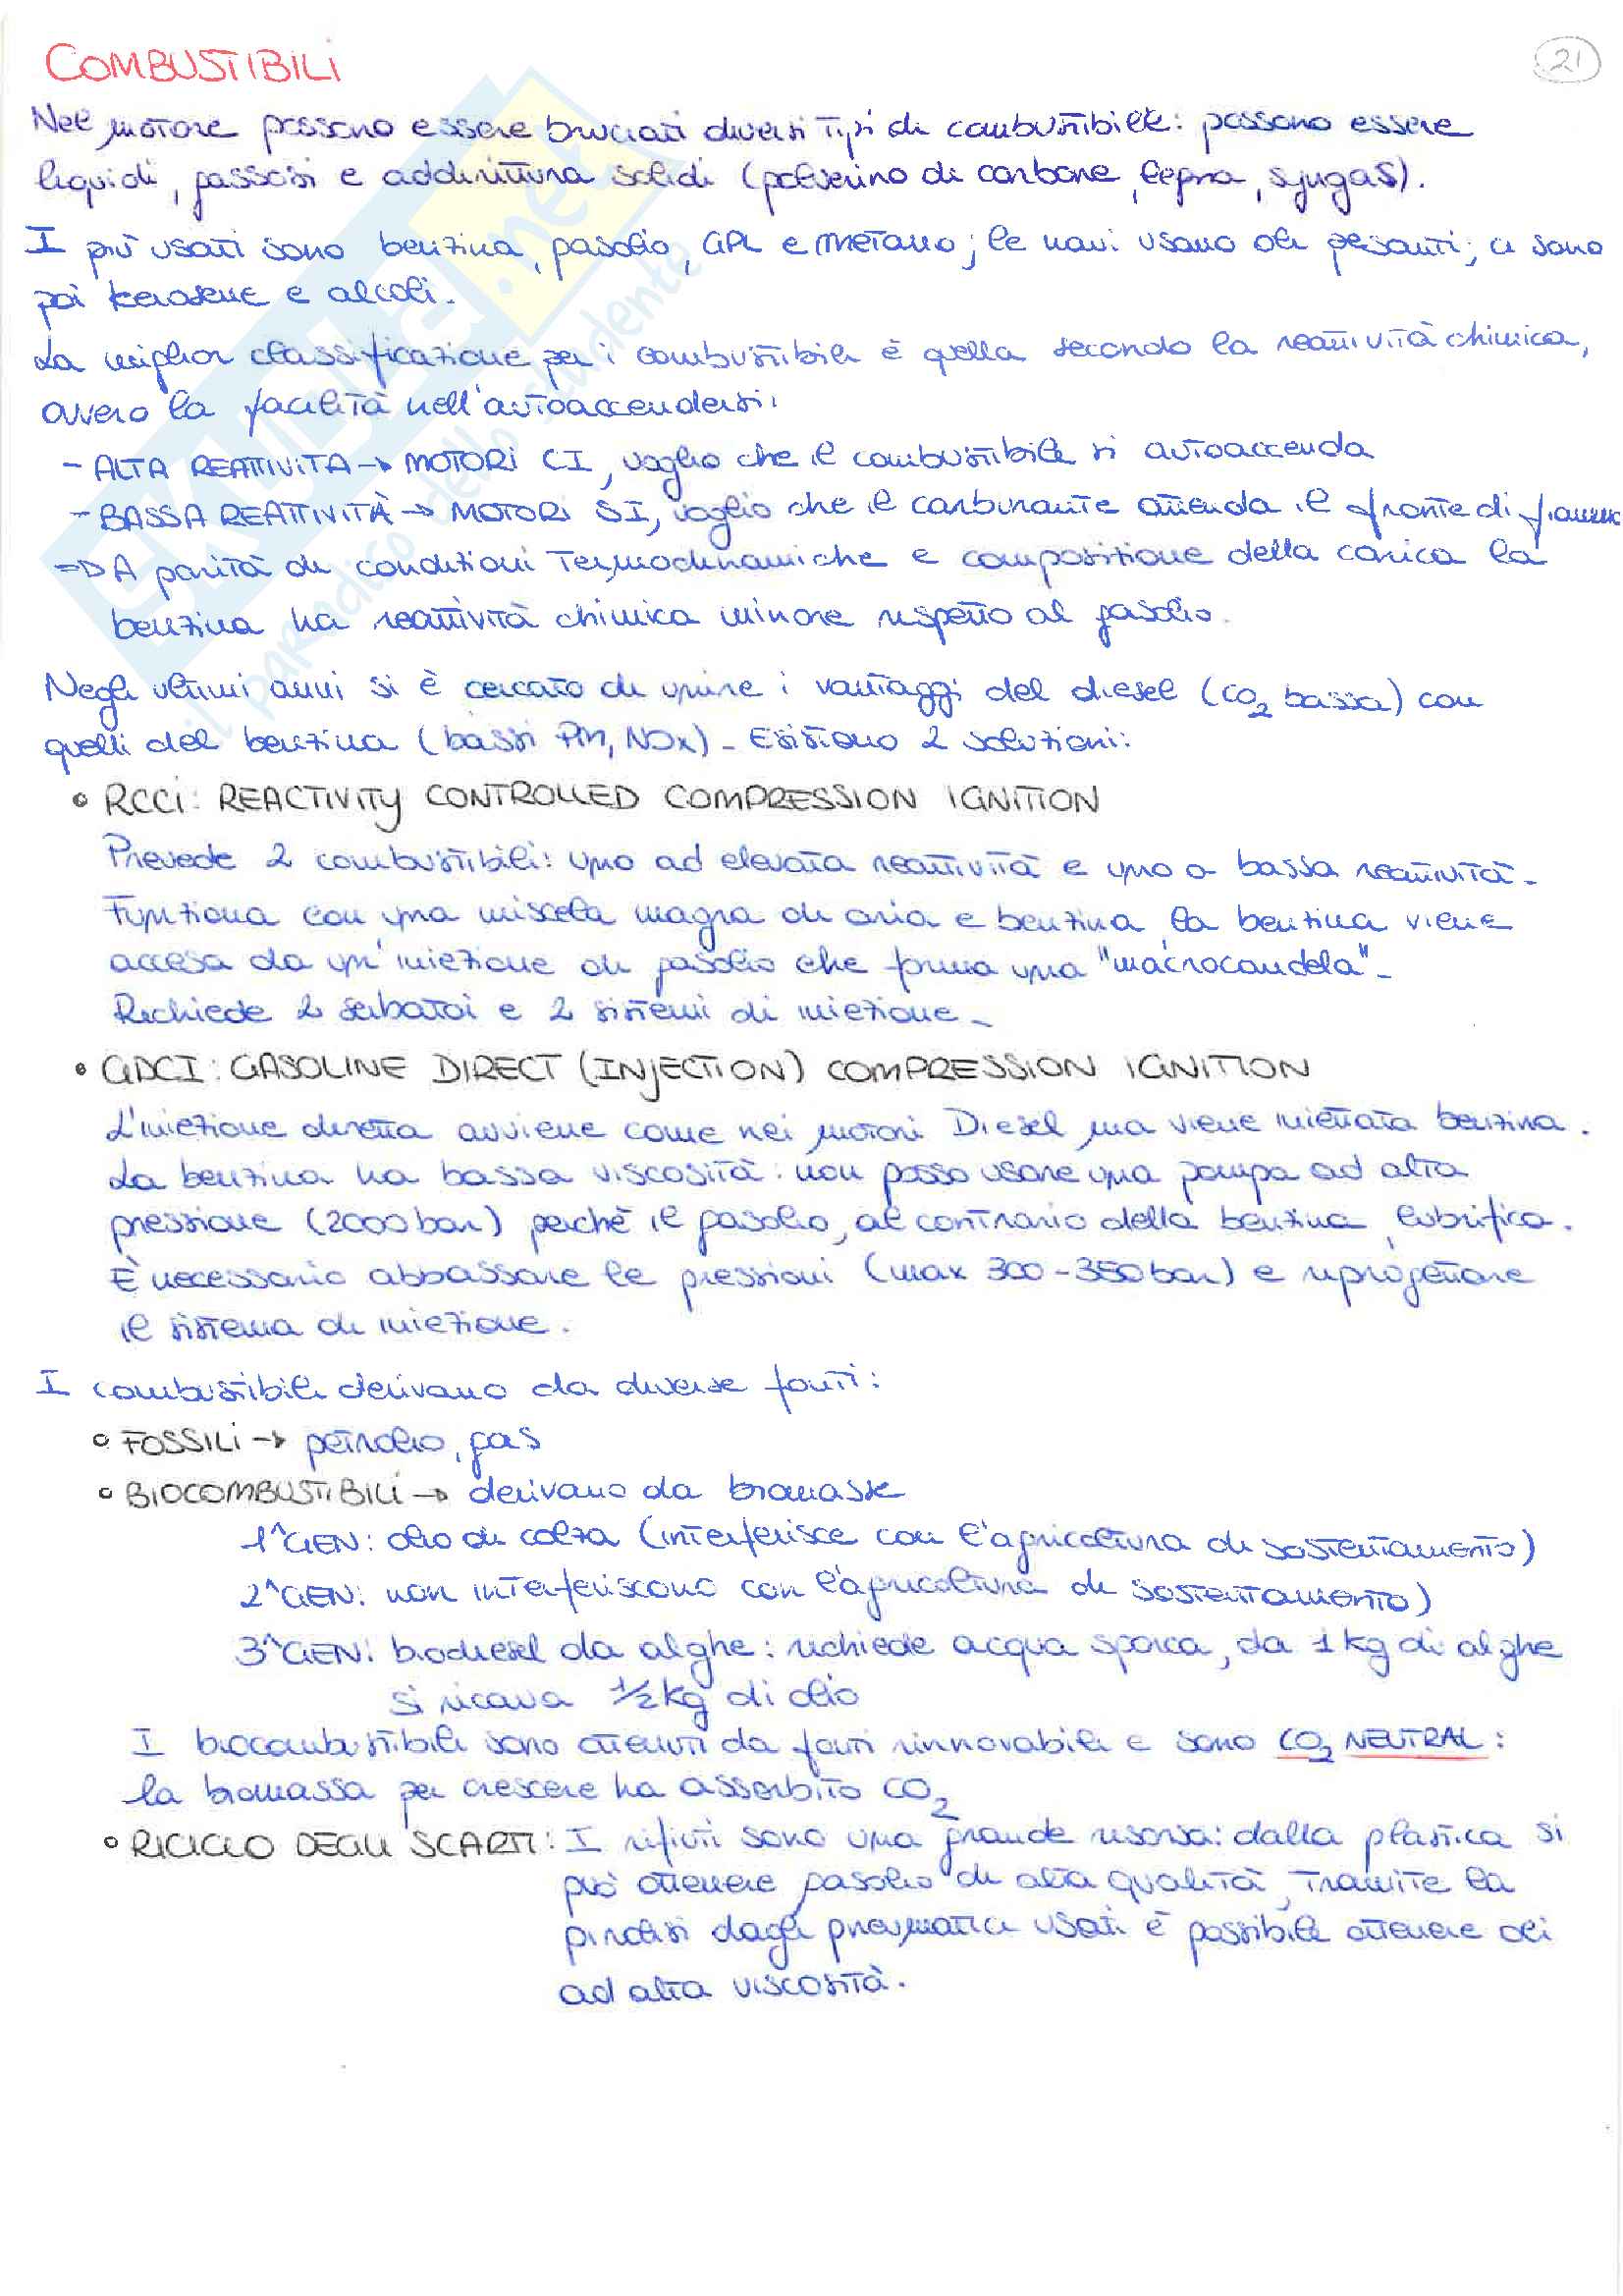 21
COMBUSTIBILI
Nel motore possono essere bruciati diversi tipi di combustibile: possono essere
liquidi, gassosi e addirittura solidi (polverino di carbone, legna, syngas).
I più usati sono benzina, gasolio, GPL e metano; le navi usano oli pesanti; ci sono
poi kerosene e alcoli.
La miglior classificazione per i combustibili è quella secondo la reattività chimica,
ovvero la facilità nell'autoaccendersi:
- ALTA REATTIVITÀ → MOTORI CI, voglio che il combustibile si autoaccenda
- BASSA REATTIVITÀ → MOTORI SI, voglio che il carburante attenda il fronte di fiamma
⇒ A parità di condizioni termodinamiche e composizione della carica la
benzina ha reattività chimica minore rispetto al gasolio.
Negli ultimi anni si è cercato di unire i vantaggi del diesel (CO2 bassa) con
quelli del benzina (bassi PM, NOx). Esistono 2 soluzioni:
• RCCI: REACTIVITY CONTROLLED COMPRESSION IGNITION
Prevede 2 combustibili: uno ad elevata reattività e uno a bassa reattività.
Funziona con una miscela magra di aria e benzina, la benzina viene
accesa da un'iniezione di gasolio che forma una "macrocandela".
Richiede 2 serbatoi e 2 sistemi di iniezione.
• GDCI: GASOLINE DIRECT (INJECTION) COMPRESSION IGNITION
L'iniezione diretta avviene come nei motori Diesel ma viene iniettata benzina.
La benzina ha bassa viscosità: non posso usare una pompa ad alta
pressione (2000 bar) perchè il gasolio, al contrario della benzina, lubrifica.
È necessario abbassare le pressioni (max 300-350 bar) e riprogettare
il sistema di iniezione.
I combustibili derivano da diverse fonti:
• FOSSILI → petrolio, gas
• BIOCOMBUSTIBILI → derivano da biomasse
1^GEN: olio di colza (interferisce con l'agricoltura di sostentamento)
2^GEN: non interferiscono con l'agricoltura di sostentamento)
3^GEN: biodiesel da alghe: richiede acqua sporca, da 1 kg di alghe
si ricava 1/2 kg di olio
I biocombustibili sono ottenuti da fonti rinnovabili e sono CO2 NEUTRAL:
la biomassa per crescere ha assorbito CO2
• RICICLO DEGLI SCARTI: I rifiuti sono una grande risorsa: dalla plastica si
può ottenere gasolio di alta qualità, tramite la
pirolisi dagli pneumatici usati è possibile ottenere oli
ad alta viscosità.
SKUOLA.net
il paradiso dello studente